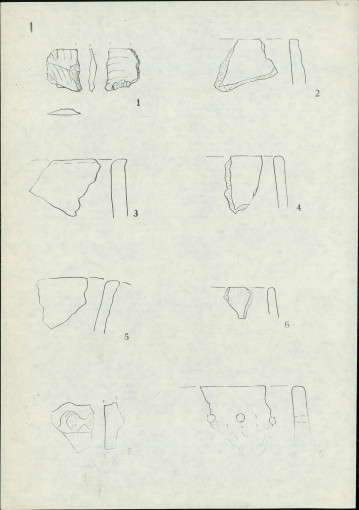 1
1
2
3
4
5
6